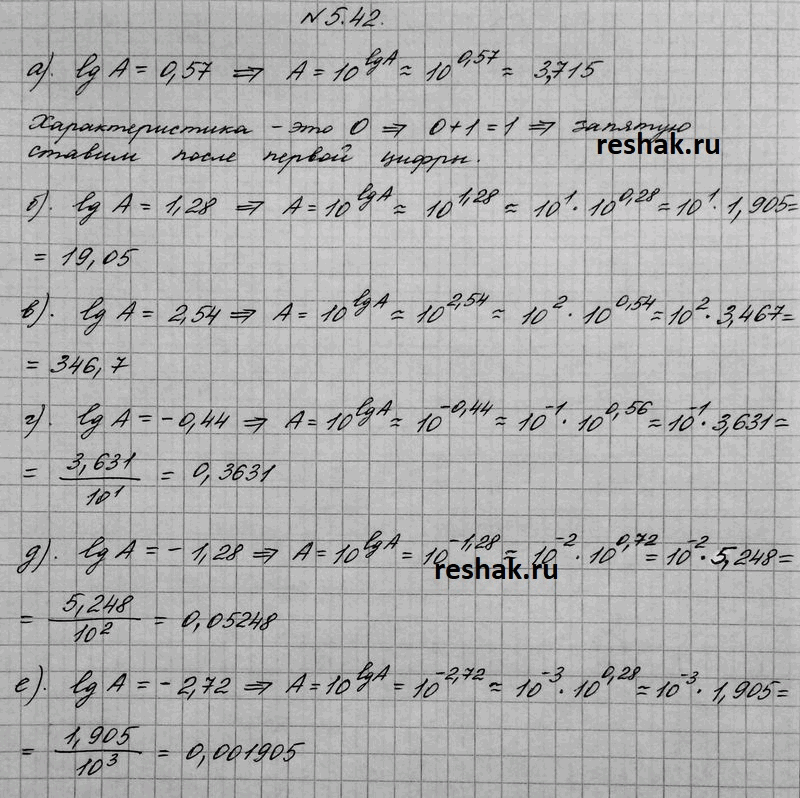 №5.42.
а). lg A = 0,57 ⇒ A = 10^lgA ≈ 10^0,57 ≈ 3,715
Характеристика - это 0 ⇒ 0+1=1 ⇒ запятую
reshak.ru
ставим после первой цифры.
б). lg A = 1,28 ⇒ A = 10^lgA ≈ 10^1,28 ≈ 10^1 · 10^0,28 = 10^1 · 1,905 =
= 19,05
в). lg A = 2,54 ⇒ A = 10^lgA ≈ 10^2,54 ≈ 10^2 · 10^0,54 = 10^2 · 3,467 =
= 346,7
г). lg A = -0,44 ⇒ A = 10^lgA ≈ 10^-0,44 ≈ 10^-1 · 10^0,56 = 10^-1 · 3,631 =
= 3,631/10^1 = 0,3631
д). lg A = -1,28 ⇒ A = 10^lgA = 10^-1,28 ≈ 10^-2 · 10^0,72 = 10^-2 · 5,248 =
reshak.ru
= 5,248/10^2 = 0,05248
е). lg A = -2,72 ⇒ A = 10^lgA = 10^-2,72 ≈ 10^-3 · 10^0,28 ≈ 10^-3 · 1,905 =
= 1,905/10^3 = 0,001905